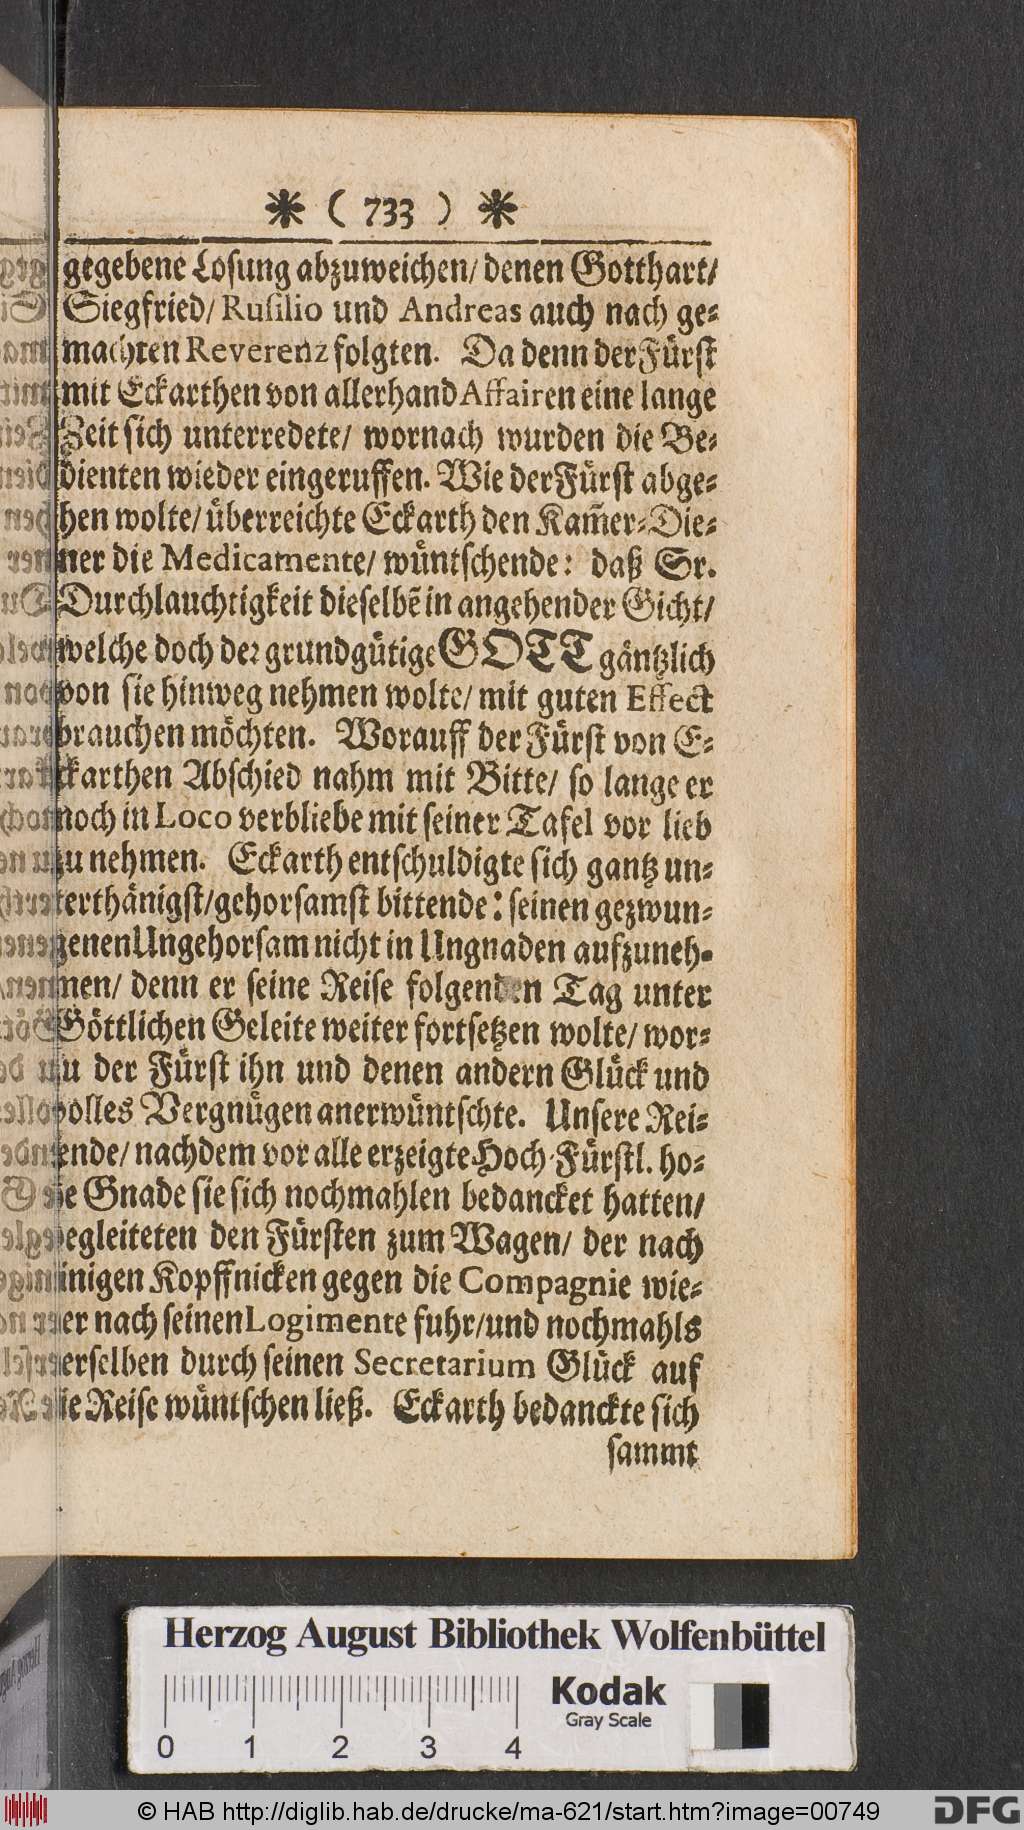 * ( 733 ) *
gegebene Losung abzuweichen/ denen Gotthart/
Siegfried/ Rusilio und Andreas auch nach ge-
machten Reverenz folgten. Da denn der Fürst
mit Eckarthen von allerhand Affairen eine lange
Zeit sich unterredete/ wornach wurden die Be-
dienten wieder eingeruffen. Wie der Fürst abge-
hen wolte/ überreichte Eckarth den Kam̃er-Die-
ner die Medicamente/ wüntschende: daß Sr.
Durchlauchtigkeit dieselbẽ in angehender Gicht/
welche doch der grundgütige GOTT gäntzlich
von sie hinweg nehmen wolte/ mit guten Effect
brauchen möchten. Worauff der Fürst von E-
ckarthen Abschied nahm mit Bitte/ so lange er
noch in Loco verbliebe mit seiner Tafel vor lieb
zu nehmen. Eckarth entschuldigte sich gantz un-
terthänigst/ gehorsamst bittende: seinen gezwun-
genen Ungehorsam nicht in Ungnaden aufzuneh-
men/ denn er seine Reise folgenden Tag unter
Göttlichen Geleite weiter fortsetzen wolte/ wor-
zu der Fürst ihn und denen andern Glück und
volles Vergnügen anerwüntschte. Unsere Rei-
ende/ nachdem vor alle erzeigte Hoch-Fürstl. ho-
e Gnade sie sich nochmahlen bedancket hatten/
egleiteten den Fürsten zum Wagen/ der nach
inigen Kopffnicken gegen die Compagnie wie-
er nach seinen Logimente fuhr/ und nochmahls
erselben durch seinen Secretarium Glück auf
ie Reise wüntschen ließ. Eckarth bedanckte sich
sammt
Herzog August Bibliothek Wolfenbüttel
Kodak
Gray Scale
0 1 2 3 4
© HAB http://diglib.hab.de/drucke/ma-621/start.htm?image=00749
DFG